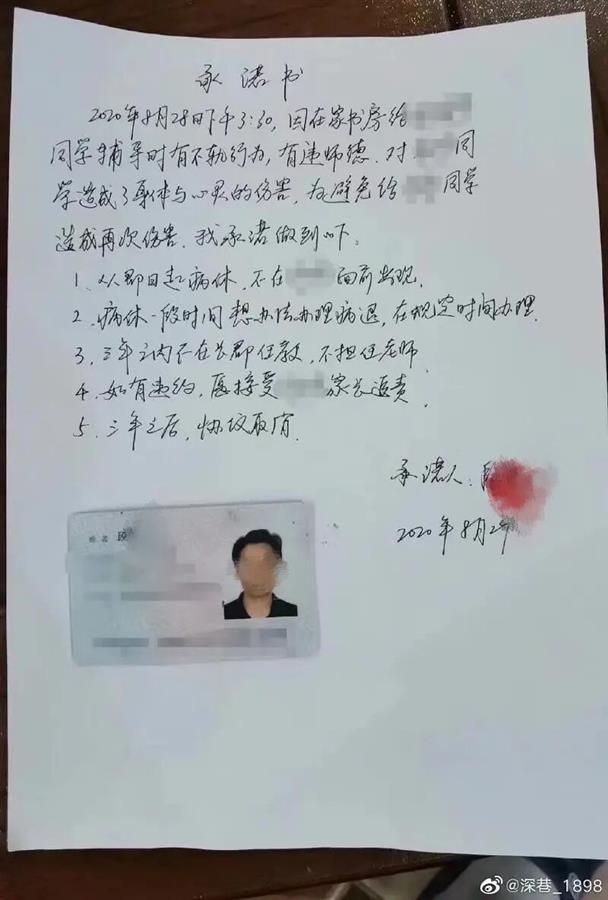 承诺书
2020年8月28日下午3:30，因在家书房给
同学辅导时有不轨行为，有违师德. 对 同
学造成了身体与心灵的伤害，为避免给 同学
造成再次伤害. 我承诺做到以下。
1、从即日起病休，不在 面前出现.
2、病休一段时间想办法办理病退，在规定时间办理.
3、三年之内不在长郡任教，不担任老师.
4、如有违约，愿接受 家长追责.
5、三年之后，协议取消.
承诺人：段
2020年8月2
姓名 段
@深巷_1898